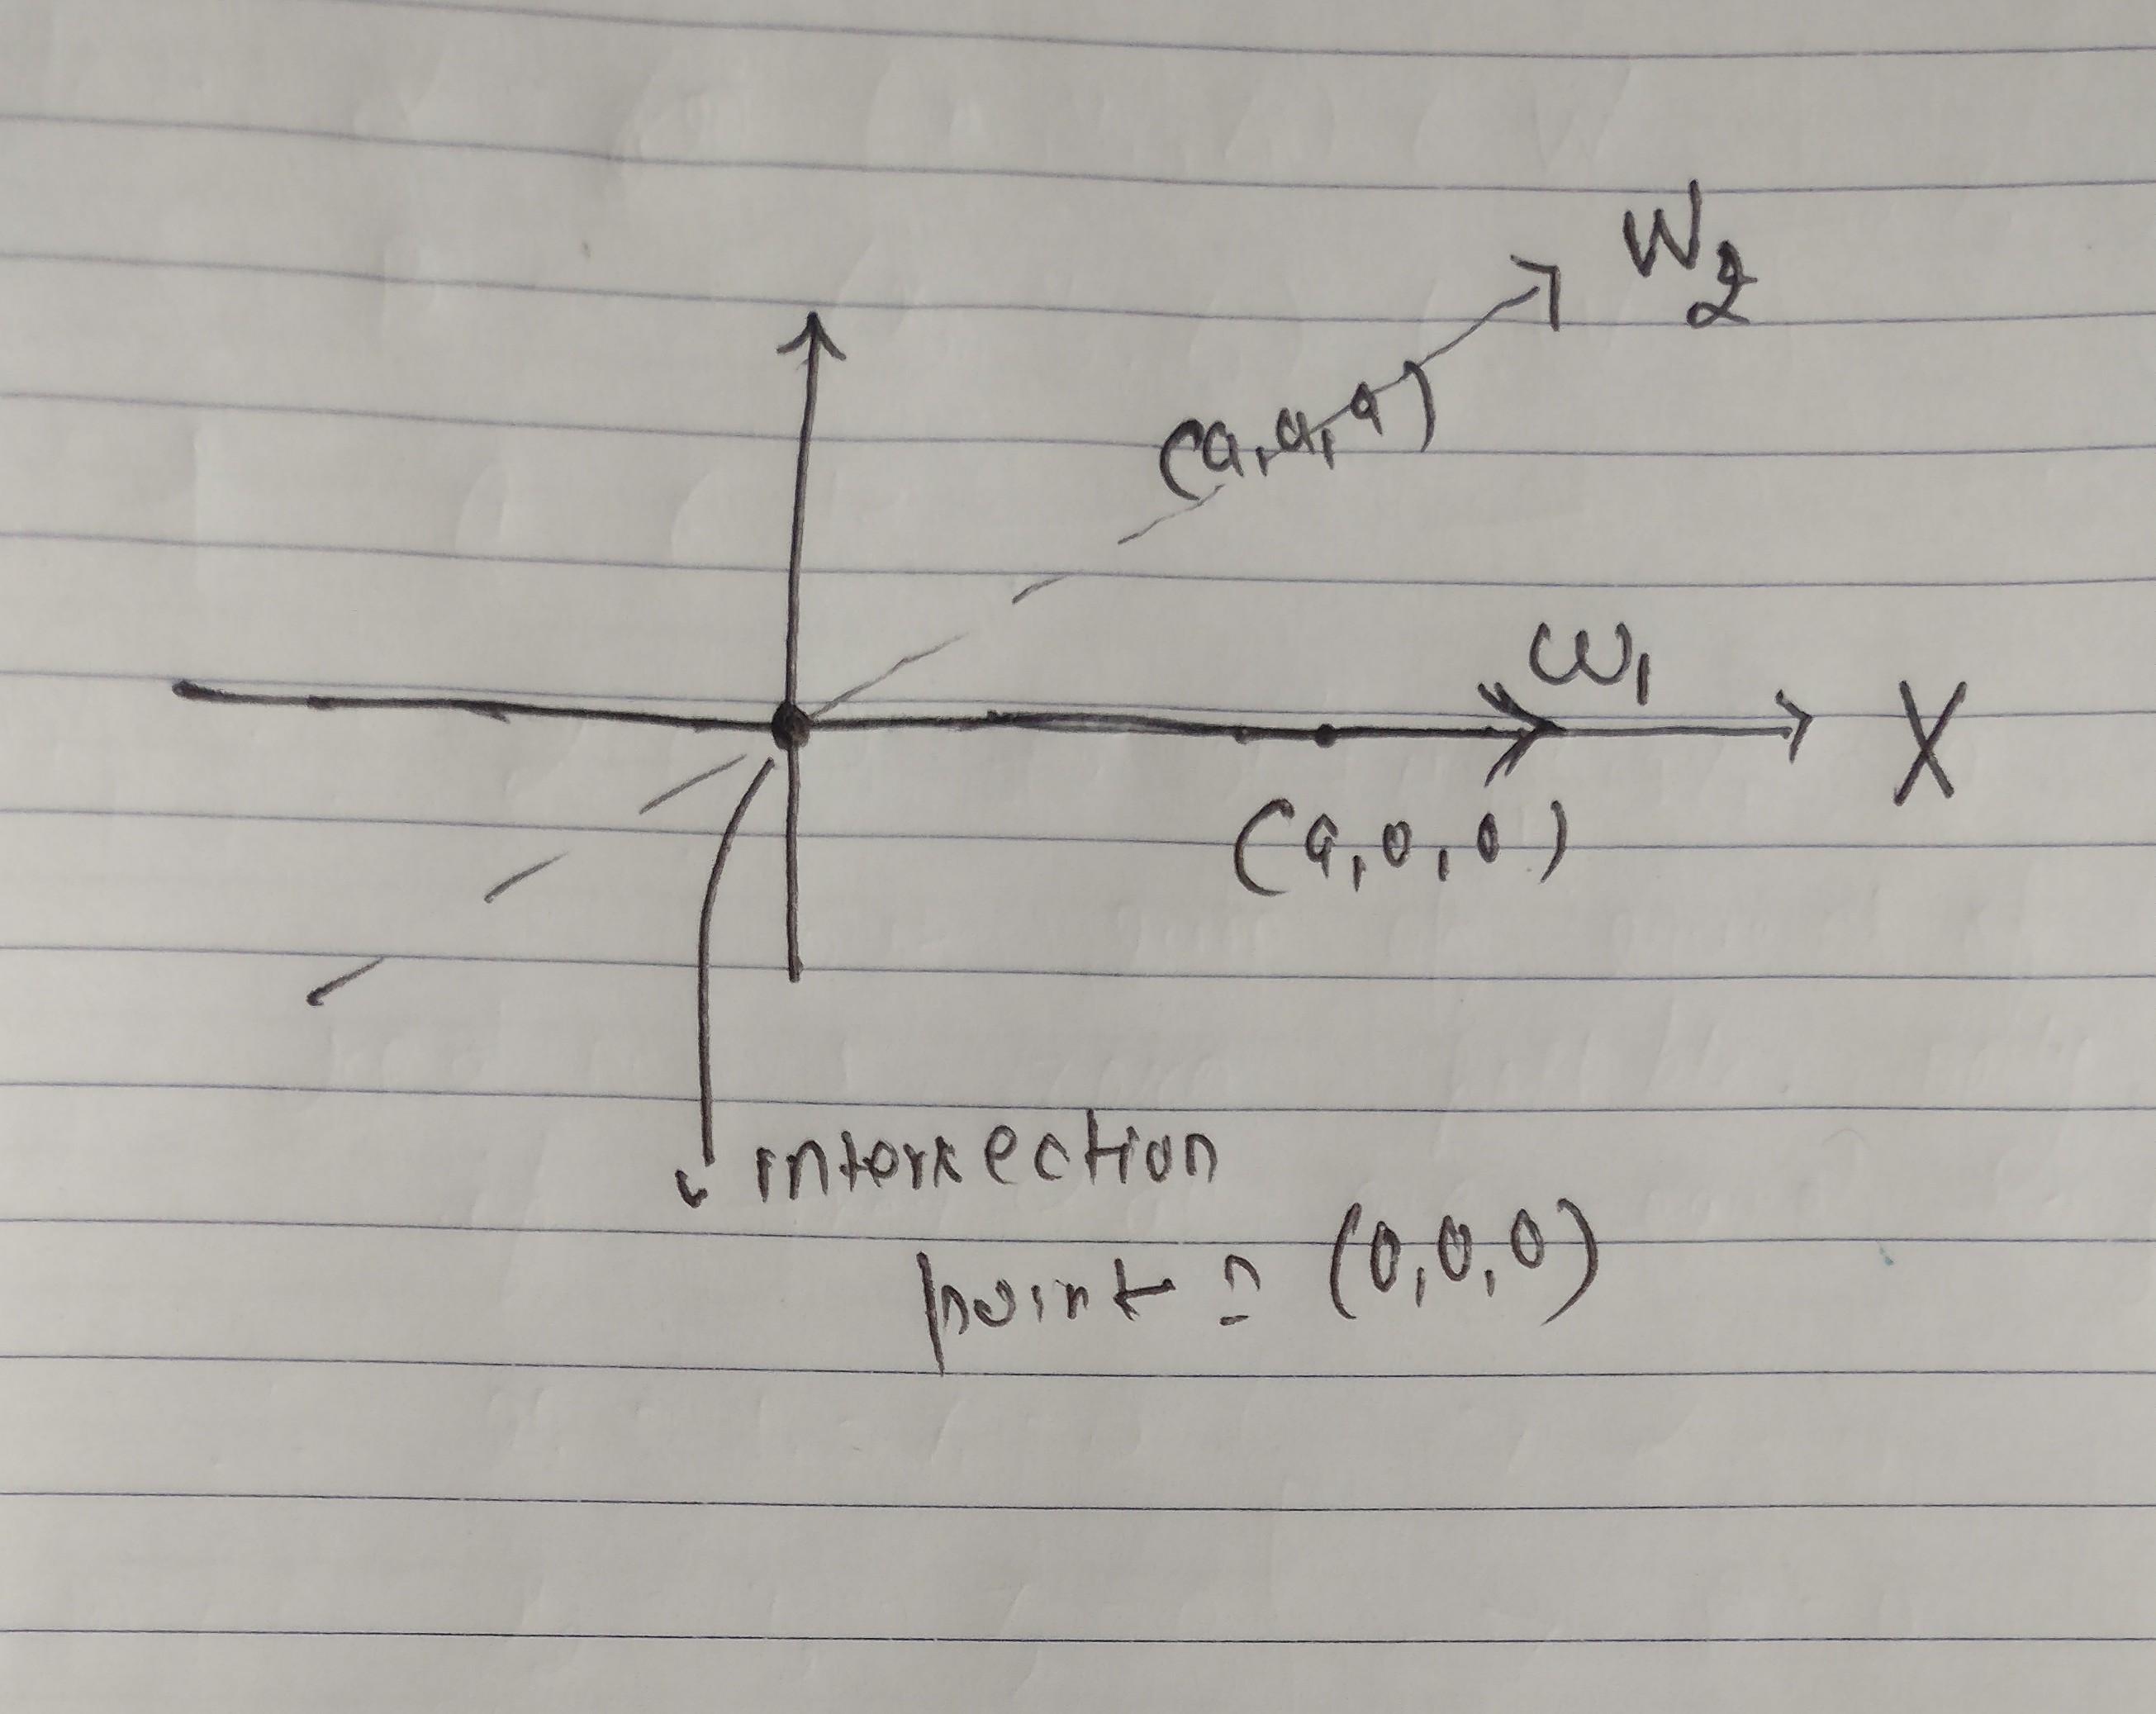 W2
(a,a,a)
W1
X
(a,0,0)
intersection
point = (0,0,0)